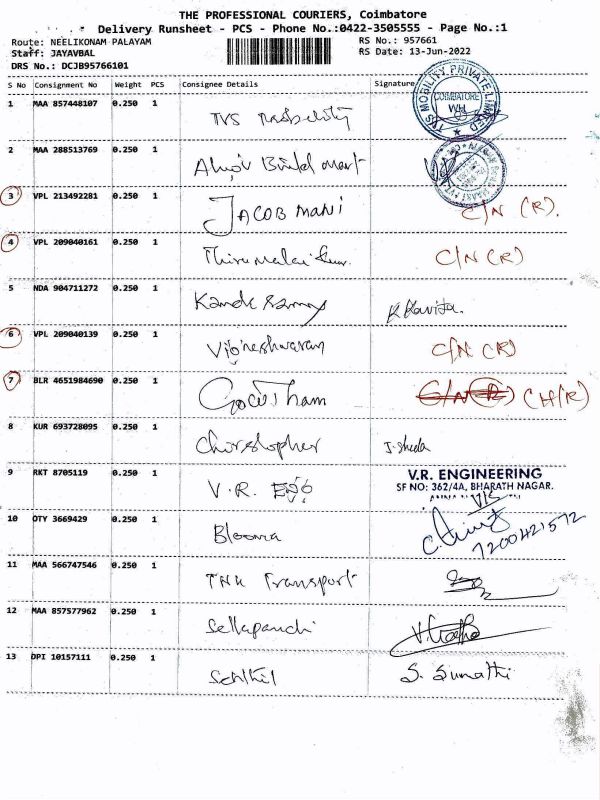 THE PROFESSIONAL COURIERS, Coimbatore
Delivery Runsheet - PCS - Phone No.:0422-3505555 - Page No.:1
Route: NEELIKONAM PALAYAM RS No.: 957661
Staff: JAYAVBAL RS Date: 13-Jun-2022
DRS No.: DCJB95766101
S No Consignment No Weight PCS Consignee Details Signature
1 MAA 857448107 0.250 1 TVS Mobility
TVS MOBILITY PRIVATE LIMITED
COIMBATORE
2 MAA 288513769 0.250 1 Build mart
3 VPL 213492281 0.250 1 JACOB MANI C/N (R).
4 VPL 209040161 0.250 1 Thirumalai Kum. C/N (R)
5 NDA 904711272 0.250 1 Kanda Samy K Kavitha.
6 VPL 209040139 0.250 1 Vigneshwaran C/N (R)
7 BLR 4651984690 0.250 1 C/N (R) C H/R)
8 KUR 693728095 0.250 1 Christopher J. Sheela
9 RKT 8705119 0.250 1 V.R. Engg
V.R. ENGINEERING
SF NO: 362/4A, BHARATH NAGAR.
10 OTY 3669429 0.250 1 Blooma
7200421572
11 MAA 566747546 0.250 1 Transport
12 MAA 857577962 0.250 1 Sellapandi
13 DPI 10157111 0.250 1 Senthil S. Sumathi